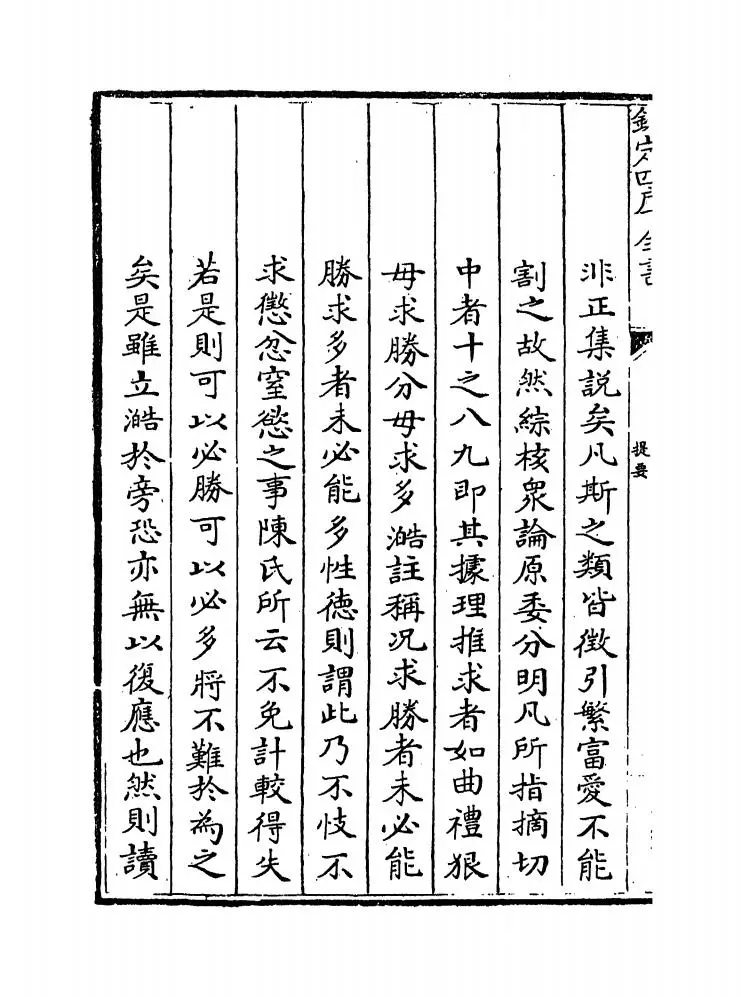 欽定四庫全書
提要
非正集説矣凡斯之類皆徴引繁富愛不能
割之故然綜核衆論原委分明凡所指摘切
中者十之八九即其據理推求者如曲禮狠
毋求勝分毋求多澔註稱况求勝者未必能
勝求多者未必能多性徳則謂此乃不忮不
求懲忿窒慾之事陳氏所云不免計較得失
若是則可以必勝可以必多將不難於為之
矣是雖立澔於旁恐亦無以復應也然則讀